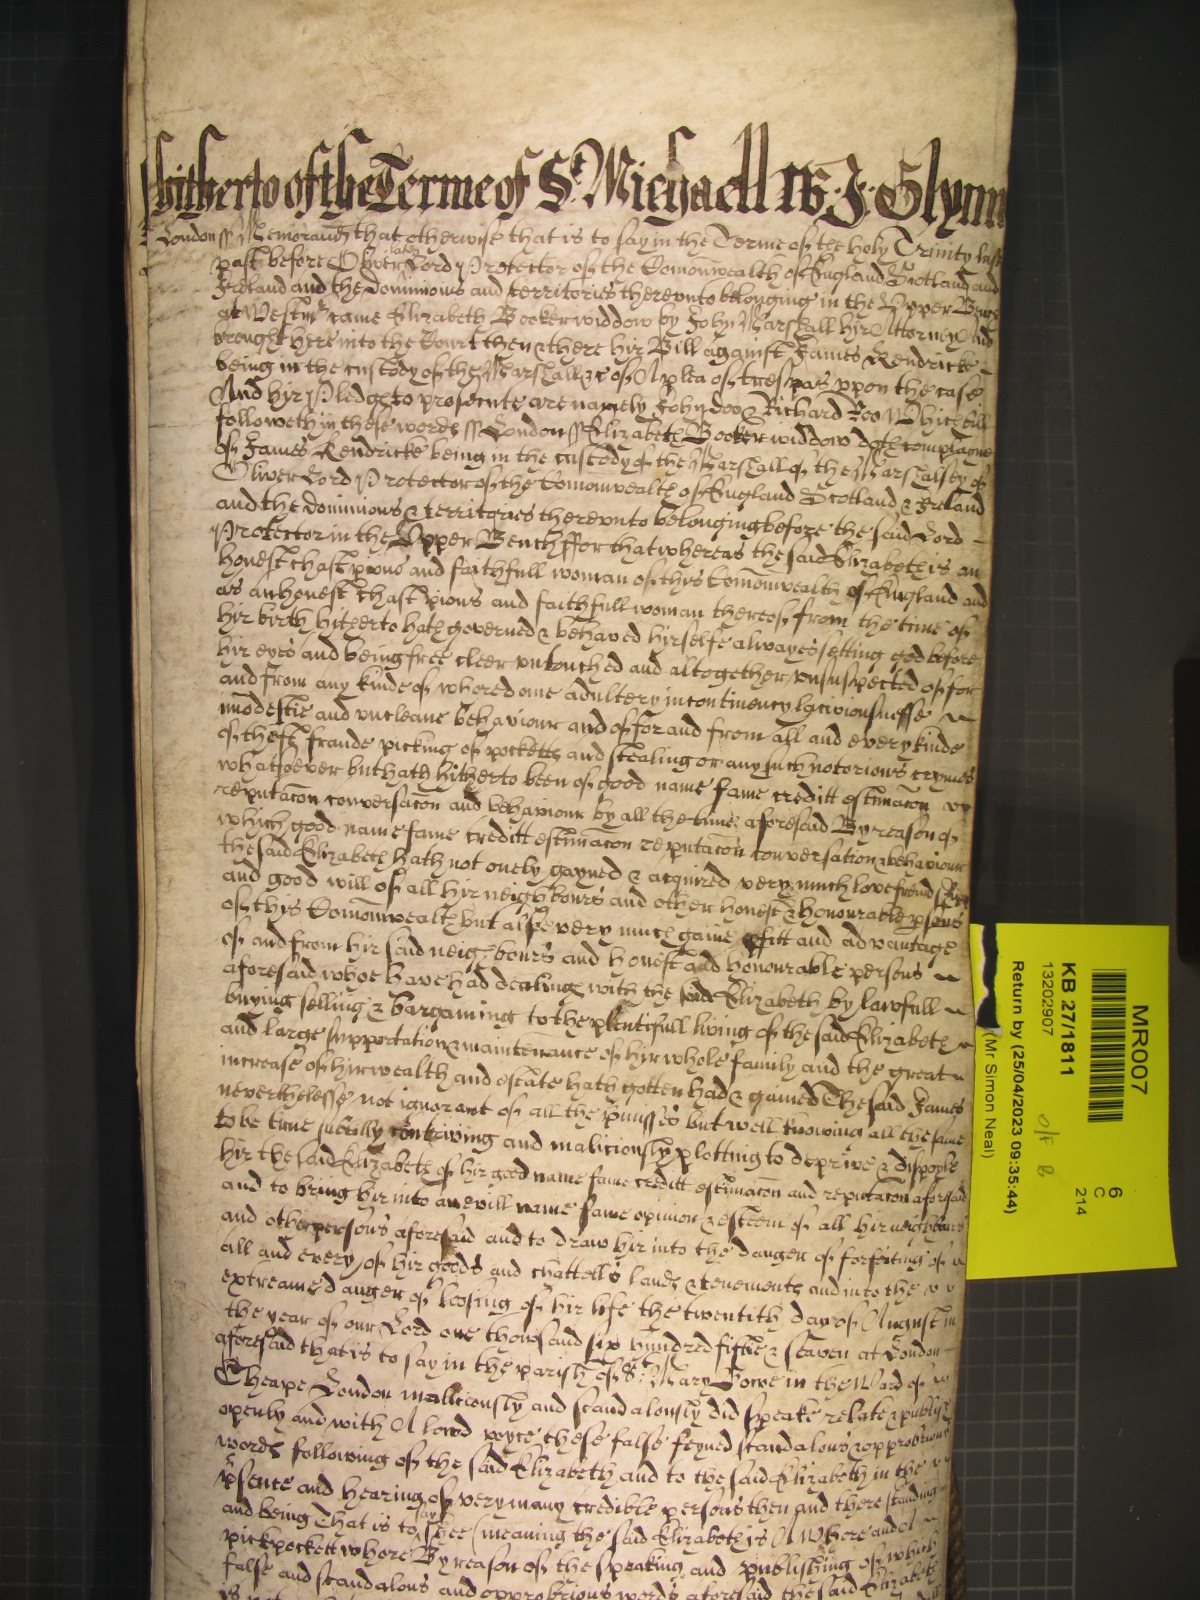 hitherto of the Terme of St. Michaell W. J. Glynn
London ss Memorand that otherwise that is to say in the Terme of the holy Trinity last
past before Oliver late Lord Protector of the Comonwealth of England Scotland and
Ireland and the dominions and territories therevnto belonging in the Vpper Bench
at Westmr came Elizabeth Booker widdow by John Marshall hir Attorney And
brought here into the Court then & there hir Bill against James Kendricke
being in the custody of the Marshall &c of A plea of trespas vpon the case
And hir Pledge to prosecute are namely John doo & Richard Roo Which bill
followeth in these words ss London ss Elizabeth Booker widdow doth complayne
of James Kendricke being in the custody of the Marshall of the Marshalsey of
Oliver Lord Protector of the Comonwealth of England Scotland & Ireland
and the dominions & territories therevnto belonging before the said Lord
Protector in the Vpper Bench ffor that whereas the said Elizabeth is an
honest chast pious and faithfull woman of thys Comonwealth of England and
as an honest chast pious and faithfull woman thereof from the time of
hir birth hitherto hath governed & behaved hirselfe alwayes setting god before
hir eyes and being free cleer vntouched and altogether vnsuspected of for
and from any kinde of whoredome adultery incontinency lacivousnesse
imodestie and vncleane behaviour and of for and from all and every kinde
of theft fraude picking of pocketts and stealing or any such notorious crymes
whatsoever but hath hitherto been of good name fame creditt estimacon
reputacon conversacon and behaviour by all the time aforesaid By reason of
which good name fame creditt estimacon reputacon conversation & behaviour
the said Elizabeth hath not onely gayned & acquired very much love
and good will of all hir neighbours and other honest & honourable psons
of thys Comonwealth but alsoe very much gaine pfitt and advantage
of and from hir said neighbours and honest and honourable persons
aforesaid whoe have had dealing with the said Elizabeth by lawfull
buying selling & bargaining to the plentifull living of the said Elizabeth
and large supportation & maintenance of hir whole family and the great
increase of hir wealth and estate hath gotten had & gained The said James
neverthelesse not ignorant of all the pmisses but well knowing all the same
to be true subtilly contriving and maliciously plotting to deprive &
hir the said Elizabeth of hir good name fame creditt estimacon and reputacon aforesaid
and to bring hir into an evill name fame opinion & esteem of all hir neighbours
and other persons aforesaid and to draw hir into the danger of forfeiting of
all and every of hir goods and chattells lands & tenements and into the
extreame danger of loosing of hir life the twentith day of August in
the year of our Lord one thousand six hundred fiftie & seaven at London
aforesaid that is to say in the parish of St. Mary Bowe in the Ward of
Cheape London maliciously and scandalously did speake relate & publish
openly and with A lowd voyce these false feyned scandalous & opprobrious
words following of the said Elizabeth and to the said Elizabeth in the
psence and hearing of very many credible persons then and there standing
and being That is to say shee (meaning the said Elizabeth is A Whore and A
pickpockett whore By reason of the speaking and publishing of which
false and scandalous and opprobrious words aforesaid the said Elizabeth
MR007
6
C
214
KB 27/1811
13202907
Return by (25/04/2023 09:35:44)
(Mr Simon Neal)